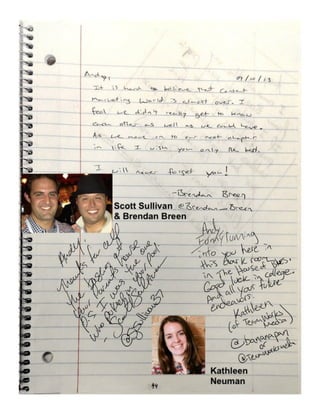 Andy,
9/10/13
It is hard to believe that Content
Marketing World is almost over. I
feel we didn't really get to know
each other as well as we could have.
As we move on to our next chapter
in life I wish you only the best.
I will never forget you!
-Brendan Breen
@Brendan_Breen
Scott Sullivan
& Brendan Breen
Andy!
Thanks for all
the
P.S. I was the one
who
- Scott Sullivan
Andy
Funny running
into you here in
this dark room
in The House of Blues.
Good luck in college.
And all your future
endeavors.
Kathleen
(of TeamWorks
Media)
@bananapan
or
@Teamworksmedia
Kathleen
Neuman